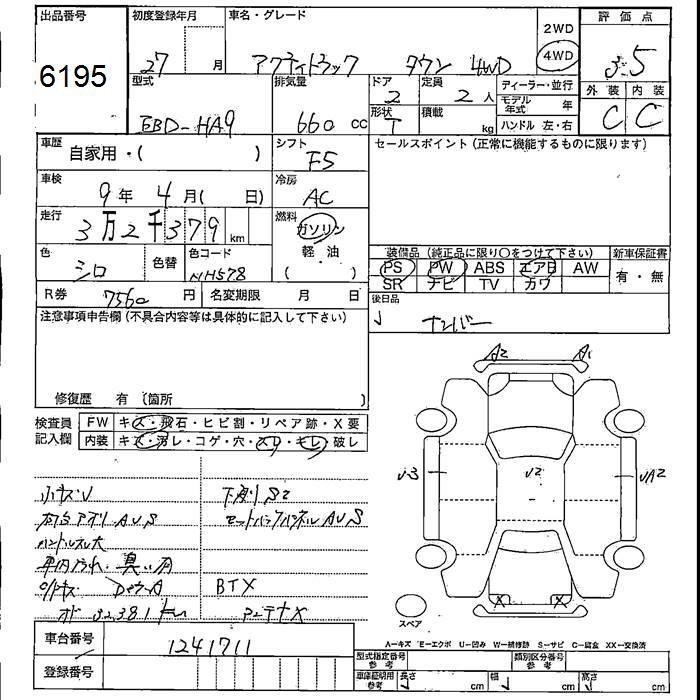 出品番号
6195
初度登録年月
27 月
車名・グレード
アクティトラック タウン 4WD
2WD
4WD
評価点
3.5
型式
EBD-HA9
排気量
660 cc
ドア
2
定員
2 人
ディーラー・並行
モデル年式 年
ハンドル 左・右
形状
T
積載
kg
外装 内装
C C
車歴
自家用・( )
シフト
F5
セールスポイント(正常に機能するものに限ります)
車検
9 年 4 月( 日)
冷房
AC
走行
3万2千379 km
燃料
ガソリン
軽油
( )
色
シロ
色替
色コード
NH578
装備品 (純正品に限り○をつけて下さい)
PS PW ABS エアB AW
SR ナビ TV カワ
新車保証書
有・無
R券
7560 円
名変期限 月 日
後日品
ナンバー
注意事項申告欄(不具合内容等は具体的に記入して下さい)
修復歴 有 (箇所 )
検査員記入欄
FW キズ・飛石・ヒビ割・リペア跡・X要
内装 キズ・汚レ・コゲ・穴・スレ・キレ・破レ
小キズU
下廻りS2
AUS
AUS
ハンドルスレ大
臭い有
BTX
32381km
アンテナX
A2 A1
U3
U2
UA2
X X
スペア
A-キズ E-エクボ U-凹み W-補修跡 S-サビ C-腐食 XX-交換済
車台番号
1241711
登録番号
型式指定番号 参考
類別区分番号 参考
車庫証明用 参考
長さ cm
幅 cm
高さ cm